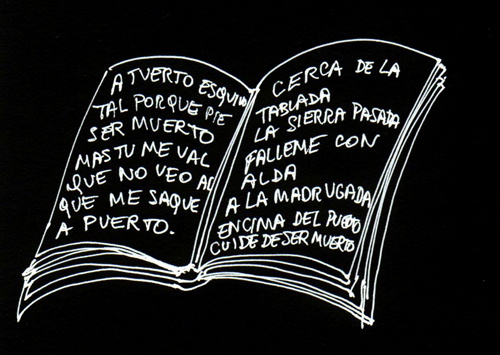 A TUERTO ESQUIVO
TAL PORQUE PIE
SER MUERTO
MAS TU ME VAL
QUE NO VEO AL
QUE ME SAQUE
A PUERTO.
CERCA DE LA
TABLADA
LA SIERRA PASADA
FALLEME CON
ALDA
A LA MADRUGADA
ENCIMA DEL
CUIDE DE SER MUERTO